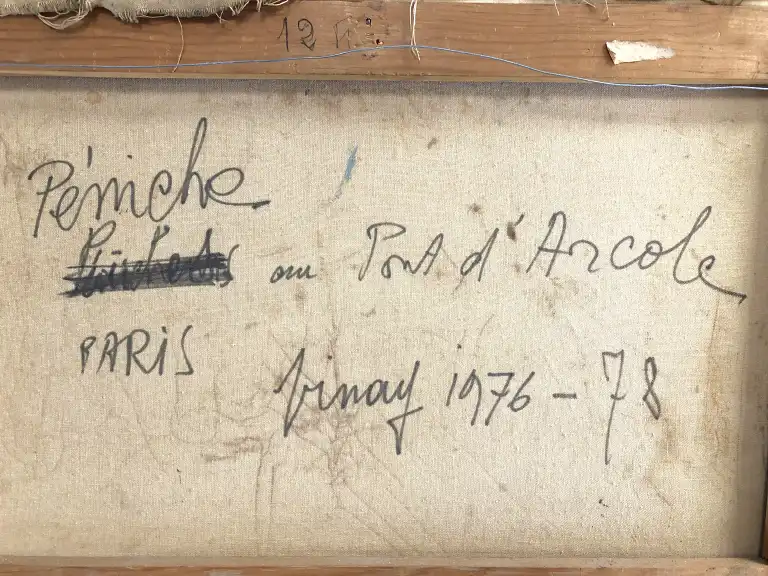 12 F
Péniche
au Pont d'Arcole
PARIS
Vinay 1976-78